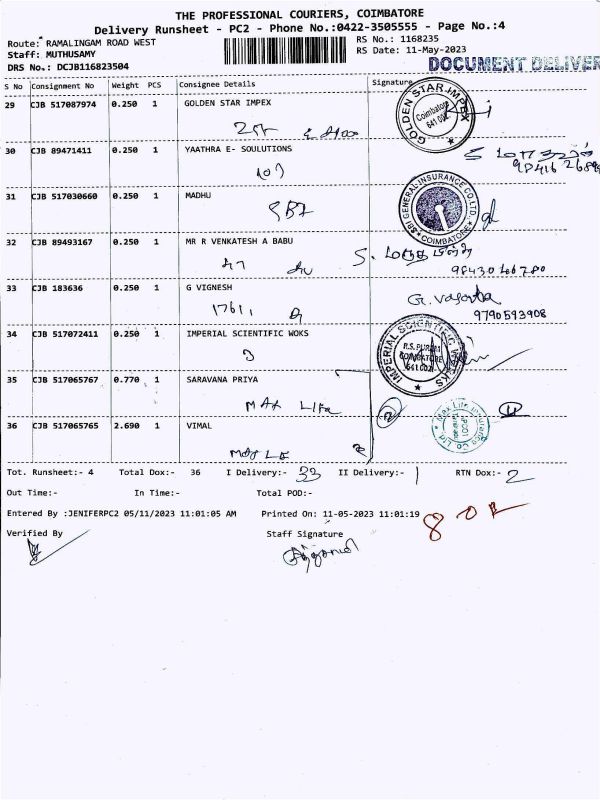 THE PROFESSIONAL COURIERS, COIMBATORE
Delivery Runsheet - PC2 - Phone No.:0422-3505555 - Page No.:4
Route: RAMALINGAM ROAD WEST
RS No.: 1168235
Staff: MUTHUSAMY
RS Date: 11-May-2023
DRS No.: DCJB116823504
DOCUMENT DELIVER
S No Consignment No Weight PCS Consignee Details Signature
29 CJB 517087974 0.250 1 GOLDEN STAR IMPEX
GOLDEN STAR IMPEX Coimbatore
30 CJB 89471411 0.250 1 YAATHRA E- SOULUTIONS
107
31 CJB 517030660 0.250 1 MADHU
SRI GENERAL INSURANCE CO.LTD. COIMBATORE
32 CJB 89493167 0.250 1 MR R VENKATESH A BABU
33 CJB 183636 0.250 1 G VIGNESH
1761,
9790593908
34 CJB 517072411 0.250 1 IMPERIAL SCIENTIFIC WOKS
3
IMPERIAL SCIENTIFIC WORKS R.S. PURAM COIMBATORE 641 002
35 CJB 517065767 0.770 1 SARAVANA PRIYA
MAX LIFe
36 CJB 517065765 2.690 1 VIMAL
Max Life Insurance Co. Ltd
Tot. Runsheet:- 4 Total Dox:- 36 I Delivery:- 33 II Delivery:- 1 RTN Dox:- 2
Out Time:- In Time:- Total POD:-
Entered By :JENIFERPC2 05/11/2023 11:01:05 AM Printed On: 11-05-2023 11:01:19
Verified By Staff Signature